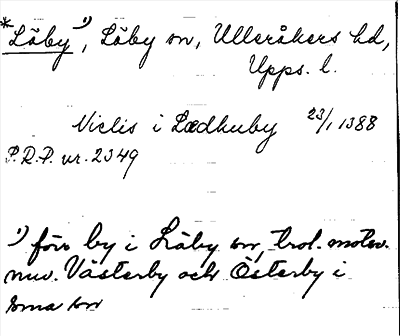 *Läby ¹), Läby sn, Ulleråkers hd,
Upps. l.
Niclis i Lædhuby 23/1 1388
P.R.P. nr. 2349
¹) förr by i Läby sn, trol. motsv.
nuv. Västerby och Österby i
sma sn